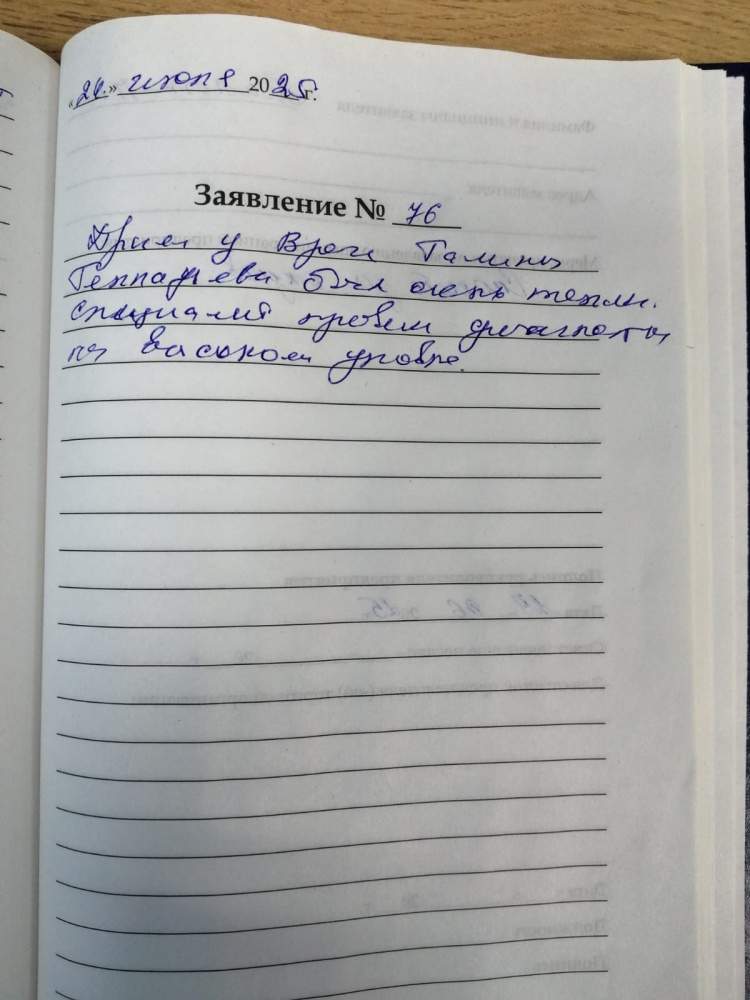 «26.» июня 2025г.
Заявление № 76
Прием у врача Галины
Геннадьеви был очень теплы.
Специалит провели диагносты
на васыком уровне.